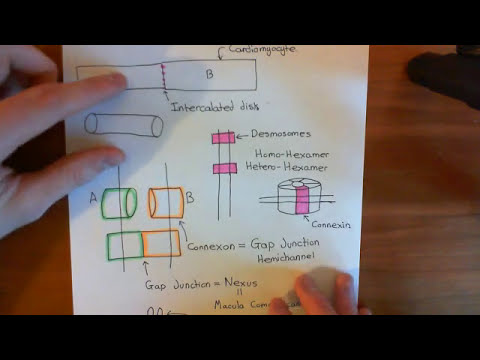 Cardiomyocyte
B
Intercalated disk
Desmosomes
Homo-Hexamer
Hetero-Hexamer
A
B
Connexin
Connexon = Gap Junction
Hemichannel
Gap Junction = Nexus
=
Macula